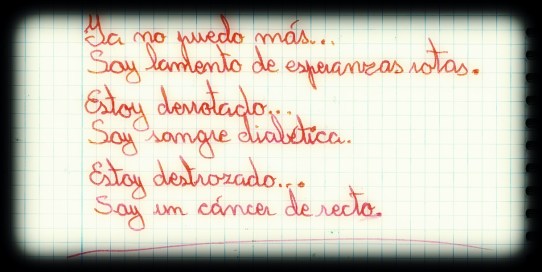 Ya no puedo más...
Soy lamento de esperanzas rotas.
Estoy derrotado...
Soy sangre diabética.
Estoy destrozado...
Soy un cáncer de recto.